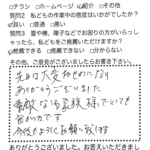 □チラシ □ホームページ ☑紹介 □その他
質問2 私どもの作業中の態度はいかがでしたか?
☑良い □普通 □悪い
質問3 畳や襖、障子などでお困りの方がいらっし
ゃったら、私どもをご推薦いただけますか?
☑推薦できる □推薦できない □分からない
その他、ご意見がございましたらお書き下さい。
先日は大変お世話になり
ありがとうございました
素敵な
今後とも宜しくお願い致します
ありがとうございました。お答えいただきまして